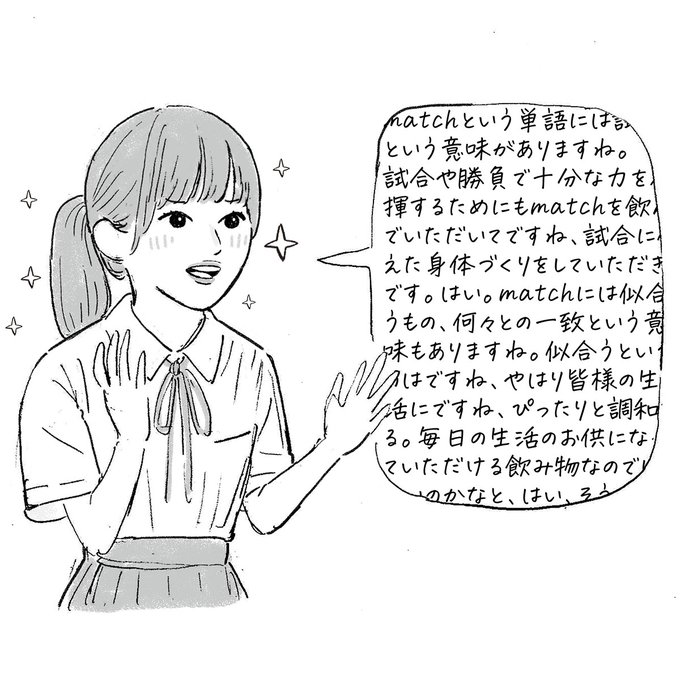 matchという単語には
という意味がありますね。
試合や勝負で十分な力を
揮するためにもmatchを飲
でいただいてですね、試合に
えた身体づくりをしていただき
です。はい。matchには似合
うもの、何々との一致という意
味もありますね。似合うとい
はですね、やはり皆様の生
活にですね、ぴったりと調和
る。毎日の生活のお供にな
ていただける飲み物なので
のかなと、はい、そう